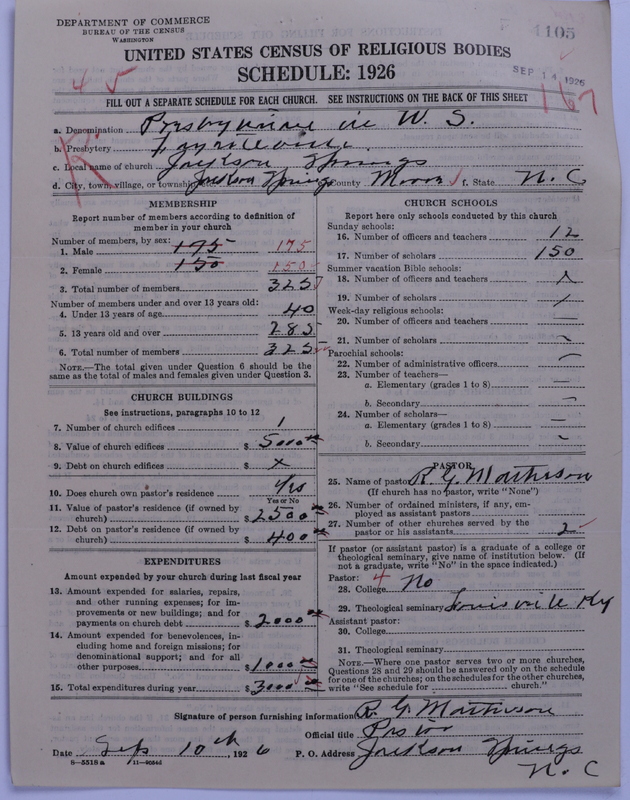 DEPARTMENT OF COMMERCE
BUREAU OF THE CENSUS
WASHINGTON
1105
UNITED STATES CENSUS OF RELIGIOUS BODIES
SCHEDULE: 1926
SEP 14 1926
45
167
FILL OUT A SEPARATE SCHEDULE FOR EACH CHURCH. SEE INSTRUCTIONS ON THE BACK OF THIS SHEET
a. Denomination in U. S.
b. Presbytery
c. Local name of church Jackson Springs
d. City, town, village, or township Jackson Springs County Moore f. State N. C
MEMBERSHIP
Report number of members according to definition of
member in your church
Number of members, by sex:
1. Male 175 175
2. Female 150 150
3. Total number of members 325
Number of members under and over 13 years old:
4. Under 13 years of age 40
5. 13 years old and over 285
6. Total number of members 325
NOTE.—The total given under Question 6 should be the
same as the total of males and females given under Question 3.
CHURCH BUILDINGS
See instructions, paragraphs 10 to 12
7. Number of church edifices 1
8. Value of church edifices $ 5000 00
9. Debt on church edifices $ x
10. Does church own pastor's residence Yes
Yes or No
11. Value of pastor's residence (if owned by
church) $ 2500 00
12. Debt on pastor's residence (if owned by
church) $ 400 00
EXPENDITURES
Amount expended by your church during last fiscal year
13. Amount expended for salaries, repairs,
and other running expenses; for im-
provements or new buildings; and for
payments on church debt $ 2000 00
14. Amount expended for benevolences, in-
cluding home and foreign missions; for
denominational support; and for all
other purposes $ 1000 00
15. Total expenditures during year $ 3000 00
CHURCH SCHOOLS
Report here only schools conducted by this church
Sunday schools:
16. Number of officers and teachers 12
17. Number of scholars 150
Summer vacation Bible schools:
18. Number of officers and teachers
19. Number of scholars
Week-day religious schools:
20. Number of officers and teachers —
21. Number of scholars
Parochial schools:
22. Number of administrative officers
23. Number of teachers—
a. Elementary (grades 1 to 8) —
b. Secondary
24. Number of scholars—
a. Elementary (grades 1 to 8) —
b. Secondary
PASTOR
25. Name of pastor R. G. Matheson
(If church has no pastor, write "None")
26. Number of ordained ministers, if any, em-
ployed as assistant pastors
27. Number of other churches served by the
pastor or his assistants 2
If pastor (or assistant pastor) is a graduate of a college or
theological seminary, give name of institution below. (If
not a graduate, write "No" in the space indicated.)
Pastor: 4
28. College No
29. Theological seminary Louisville Ky
Assistant pastor:
30. College
31. Theological seminary
NOTE.—Where one pastor serves two or more churches,
Questions 28 and 29 should be answered only on the schedule
for one of the churches; on the schedules for the other churches,
write "See schedule for church."
Signature of person furnishing information R. G. Matheson
Official title Pastor
Date Sep 10th, 1926 P. O. Address Jackson Springs
N. C
8—5518 a